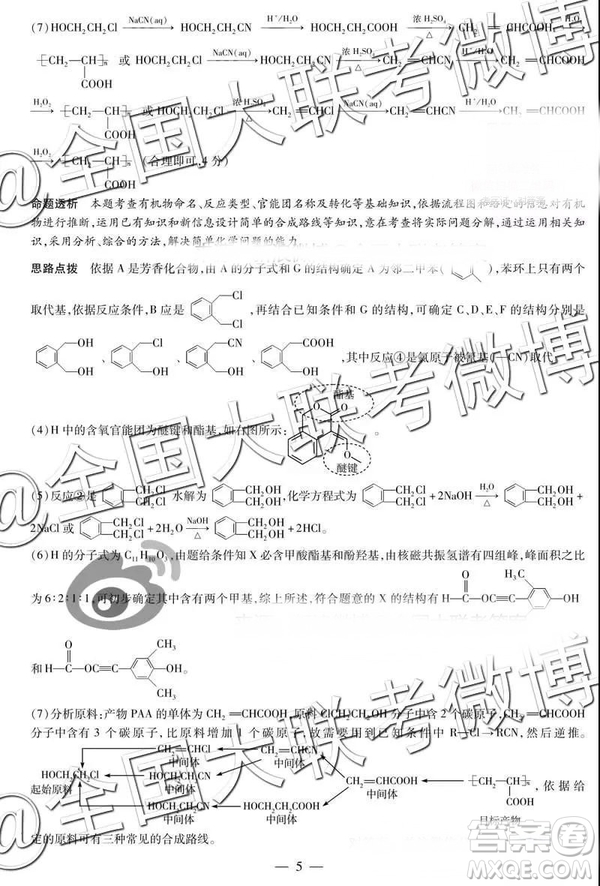 (7)HOCH₂CH₂Cl —NaCN(aq)→ HOCH₂CH₂CN —H⁺/H₂O→ HOCH₂CH₂COOH —浓H₂SO₄/△→ CH₂═CHCOOH —H₂O₂→
⁅CH₂—CH⁆ₙ 或 HOCH₂CH₂Cl —NaCN(aq)→ HOCH₂CH₂CN —浓H₂SO₄/△→ CH₂═CHCN —H⁺/H₂O→ CH₂═CHCOOH
COOH
—H₂O₂→ ⁅CH₂—CH⁆ₙ 或 HOCH₂CH₂Cl —浓H₂SO₄/△→ CH₂═CHCl —NaCN(aq)→ CH₂═CHCN —H⁺/H₂O→ CH₂═CHCOOH
COOH
—H₂O₂→ ⁅CH₂—CH⁆ₙ (合理即可,4分)
COOH
命题透析 本题考查有机物命名、反应类型、官能团名称及转化等基础知识,依据流程图和给定的信息对有机
物进行推断,运用已有知识和新信息设计简单的合成路线等知识,意在考查将实际问题分解,通过运用相关知
识,采用分析、综合的方法,解决简单化学问题的能力。
思路点拨 依据A是芳香化合物,由A的分子式和G的结构确定A为邻二甲苯( ),苯环上只有两个
取代基,依据反应条件,B应是 CH₂Cl CH₂Cl ,再结合已知条件和G的结构,可确定C、D、E、F的结构分别是
CH₂OH CH₂OH 、 CH₂Cl CH₂OH 、 CH₂CN CH₂OH 、 CH₂COOH CH₂OH ,其中反应④是氯原子被氰基(—CN)取代。
酯基
(4)H中的含氧官能团为醚键和酯基,如右图所示: 。
醚键
(5)反应②是 CH₂Cl CH₂Cl 水解为 CH₂OH CH₂OH ,化学方程式为 CH₂Cl CH₂Cl +2NaOH —H₂O/△→ CH₂OH CH₂OH +
2NaCl或 CH₂Cl CH₂Cl +2H₂O —NaOH/△→ CH₂OH CH₂OH +2HCl。
(6)H的分子式为C₁₁H₁₀O₃,由题给条件知X必含甲酸酯基和酚羟基,由核磁共振氢谱有四组峰,峰面积之比
为6∶2∶1∶1,可初步确定其中含有两个甲基,综上所述,符合题意的X的结构有 H—C—OC≡ —OH O H₃C CH₃
和 H—C—OC≡ —OH O CH₃ CH₃ 。
(7)分析原料:产物PAA的单体为CH₂═CHCOOH,原料ClCH₂CH₂OH分子中含2个碳原子,CH₂═CHCOOH
分子中含有3个碳原子,比原料增加1个碳原子,故需要用到已知条件中R—Cl→RCN,然后逆推。
HOCH₂CH₂Cl CH₂═CHCl CH₂═CHCN
起始原料 中间体 中间体
HOCH₂CH₂CN CH₂═CHCOOH ⁅CH₂—CH⁆ₙ ,依据给
中间体 中间体 COOH
HOCH₂CH₂CN HOCH₂CH₂COOH 目标产物
中间体 中间体
定的原料可有三种常见的合成路线。
— 5 —
@全国大联考微博
@全国大联考微博
@全国大联考微博
答案圈
MXQE.COM